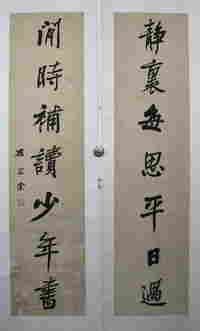 靜裏每思平日過
閒時補讀少年書